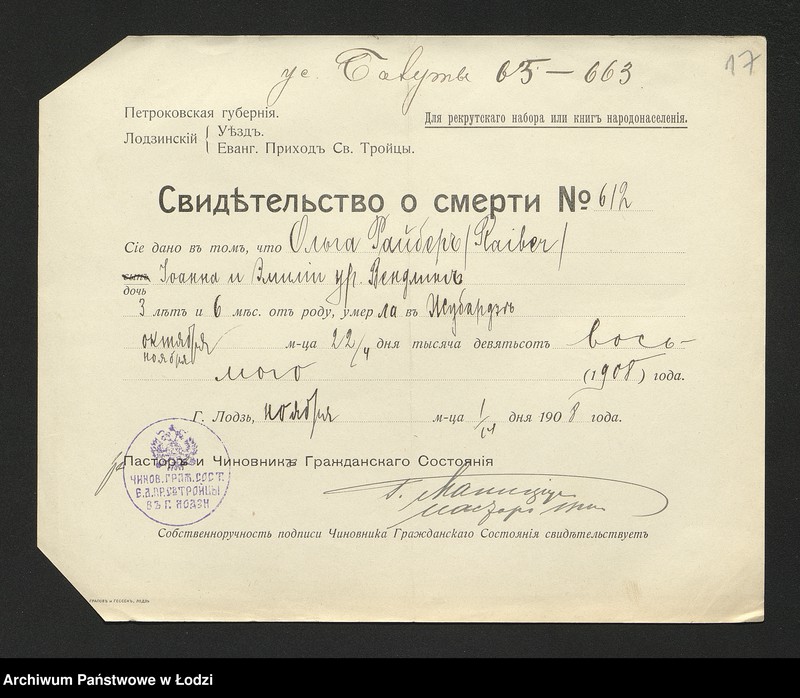 ус. Балуты 65 — 663
17
Петроковская губернія.
Лодзинскій { Уѣздъ.
Еванг. Приходъ Св. Тройцы.
Для рекрутскаго набора или книгъ народонаселенія.
Свидѣтельство о смерти № 612
Сіе дано въ томъ, что Ольга Райберъ /Raiber/
сынъ Іоанна и Эмиліи ур. Вендлинъ
дочь
3 лѣтъ и 6 мѣс. отъ роду, умерла въ Жубардзь
октября м-ца 22/4 дня тысяча девятьсотъ вось-
ноября
мого (1908) года.
Г. Лодзь, ноября м-ца 1/14 дня 1908 года.
за Пасторъ и Чиновникъ Гражданскаго Состоянія
ЧИНОВ. ГРАЖ. СОСТ.
Е. А. ПР. СВ. ТРОЙЦЫ
ВЪ Г. ЛОДЗИ
Собственноручность подписи Чиновника Гражданскаго Состоянія свидѣтельствуетъ
Archiwum Państwowe w Łodzi